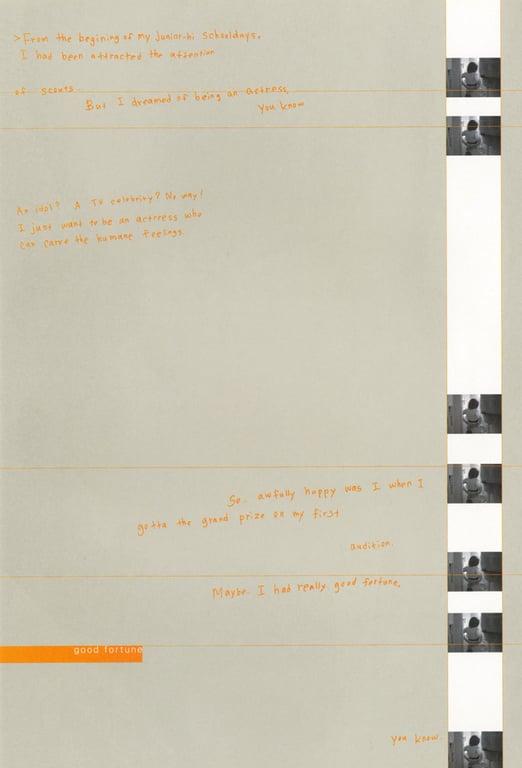 >From the begining of my junior-hi schooldays.
I had been attracted the attention
of scouts.
But I dreamed of being an actress.
You know
An idol? A TV celebrity? No way!
I just want to be an actrress who
can carve the humane feelings.
So.. awfully happy was I when I
gotta the grand prize on my first
audition.
Maybe. I had really good fortune.
good fortune
you know.